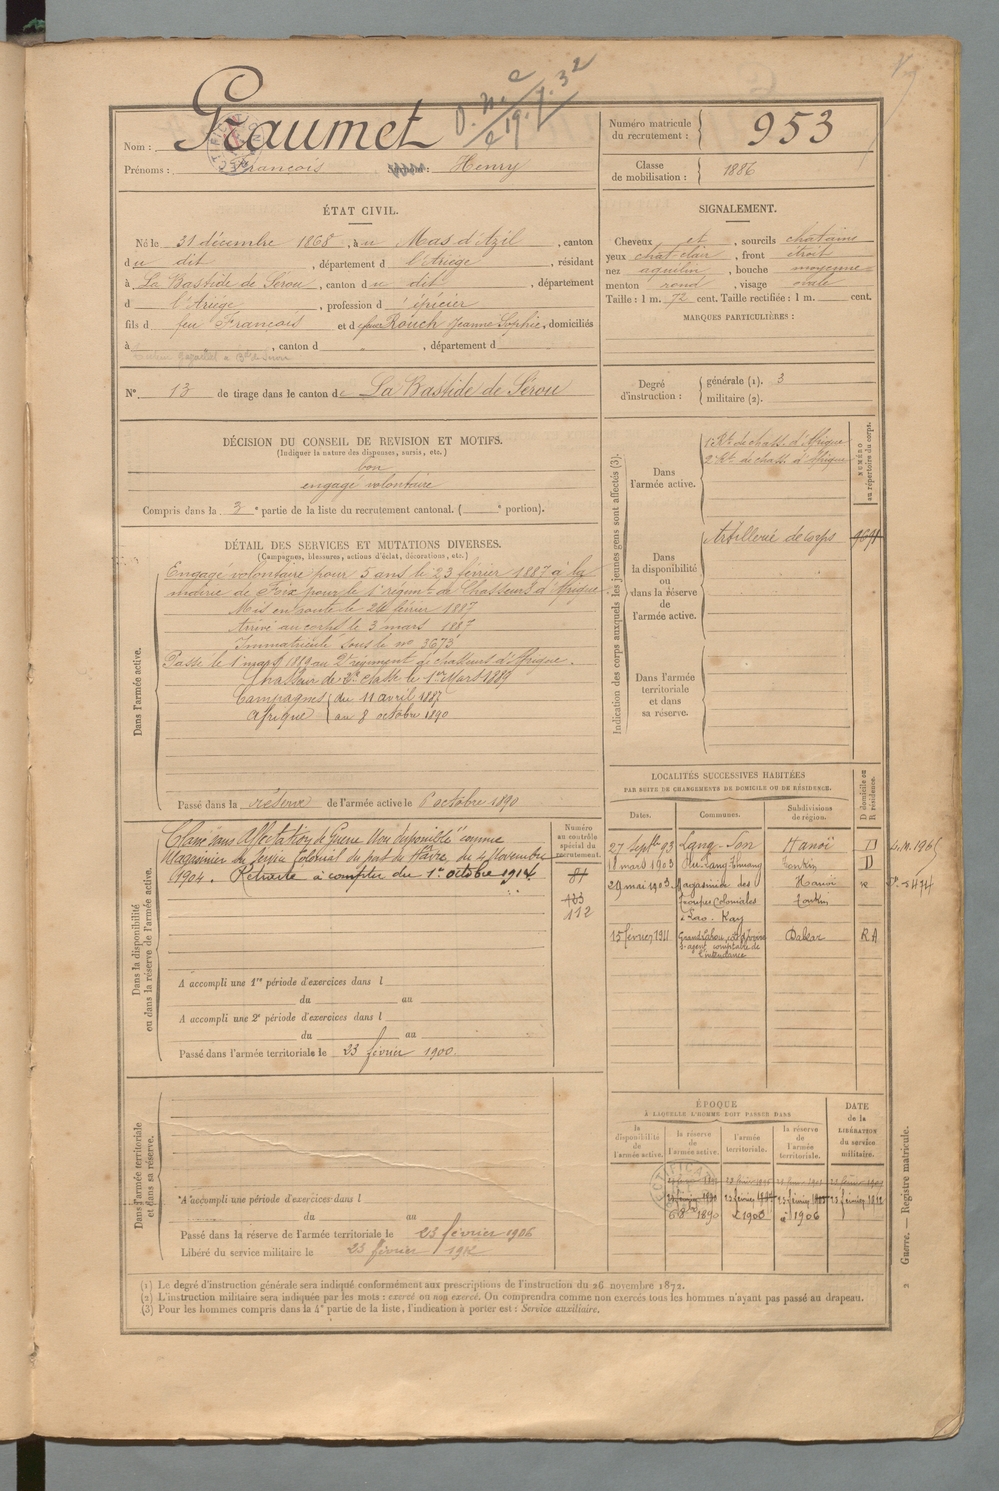 Nom : Graumet
Prénoms : François Surnom : Henry
Numéro matricule du recrutement : 953
Classe de mobilisation : 1886
ÉTAT CIVIL.
Né le 31 décembre 1868, à u Mas d'Azil, canton
d u dit, département d l'Ariège, résidant
à La Bastide de Sérou, canton d u dit, département
d l'Ariège, profession d 'épicier
fils d feu François et d feue Rouch Jeanne Sophie, domiciliés
à , canton d , département d
N° 13 de tirage dans le canton de La Bastide de Sérou
SIGNALEMENT.
Cheveux et , sourcils châtains
yeux chat-clair , front étroit
nez aquilin , bouche moyenne
menton rond , visage ovale
Taille : 1 m. 72 cent. Taille rectifiée : 1 m. cent.
MARQUES PARTICULIÈRES :
Degré d'instruction : générale (1). 3
militaire (2).
DÉCISION DU CONSEIL DE REVISION ET MOTIFS.
(Indiquer la nature des dispenses, sursis, etc.)
bon
engagé volontaire
Compris dans la 3e partie de la liste du recrutement cantonal. ( e portion).
DÉTAIL DES SERVICES ET MUTATIONS DIVERSES.
(Campagnes, blessures, actions d'éclat, décorations, etc.)
Dans l'armée active.
Engagé volontaire pour 5 ans le 23 février 1887 à la
mairie de Foix pour le 1er régimt de Chasseurs d'Afrique
Mis en route le 24 février 1887
Arrivé au corps le 3 mars 1887
Immatriculé sous le no 3673
Passé le 1er mars 18 au 2e régiment de chasseurs d'Afrique.
Chasseur de classe le 1er Mars 1889
Campagnes du 11 avril 1887
Afrique au 8 octobre 1890
Passé dans la réserve de l'armée active le 6 octobre 1890
Indication des corps auxquels les jeunes gens sont affectés (3).
NUMÉRO au répertoire du corps.
Dans l'armée active.
1er Rt de chass. d'Afrique
2e Rt de chass. d'Afrique
Dans la disponibilité ou dans la réserve de l'armée active.
Artillerie de corps
Dans l'armée territoriale et dans sa réserve.
Dans la disponibilité ou dans la réserve de l'armée active.
Classé sans Affectation de Guerre "Non disponible" comme
Magasinier du Service Colonial du port du Hâvre, du 4 Novembre
1904. Retraité à compter du 1er octobre 1914
Numéro au contrôle spécial du recrutement.
81
123
112
A accompli une 1re période d'exercices dans l
du au
A accompli une 2e période d'exercices dans l
du au
Passé dans l'armée territoriale le 23 février 1900.
LOCALITÉS SUCCESSIVES HABITÉES
PAR SUITE DE CHANGEMENTS DE DOMICILE OU DE RÉSIDENCE.
Dates. Communes. Subdivisions de région. D domicile ou R résidence.
27 Septbre 93 Lang-Son Hanoï D
18 mars 1903 Tonkin D
29 mai 1903. Magasinier des Hanoï R
troupes coloniales Tonkin
à Lao-Kay
15 février 1911 Dakar RA
s-agent comptable de
l'intendance
Dans l'armée territoriale et dans sa réserve.
A accompli une période d'exercices dans l
du au
Passé dans la réserve de l'armée territoriale le 23 février 1906
Libéré du service militaire le 23 février 1912
ÉPOQUE
À LAQUELLE L'HOMME DOIT PASSER DANS
la disponibilité de l'armée active.
la réserve de l'armée active.
l'armée territoriale.
la réserve de l'armée territoriale.
DATE de la LIBÉRATION du service militaire.
6 8bre 1890 d 1900 d 1906
(1) Le degré d'instruction générale sera indiqué conformément aux prescriptions de l'instruction du 26 novembre 1872.
(2) L'instruction militaire sera indiquée par les mots : exercé ou non exercé. On comprendra comme non exercés tous les hommes n'ayant pas passé au drapeau.
(3) Pour les hommes compris dans la 4e partie de la liste, l'indication à porter est : Service auxiliaire.
2 Guerre. — Registre matricule.